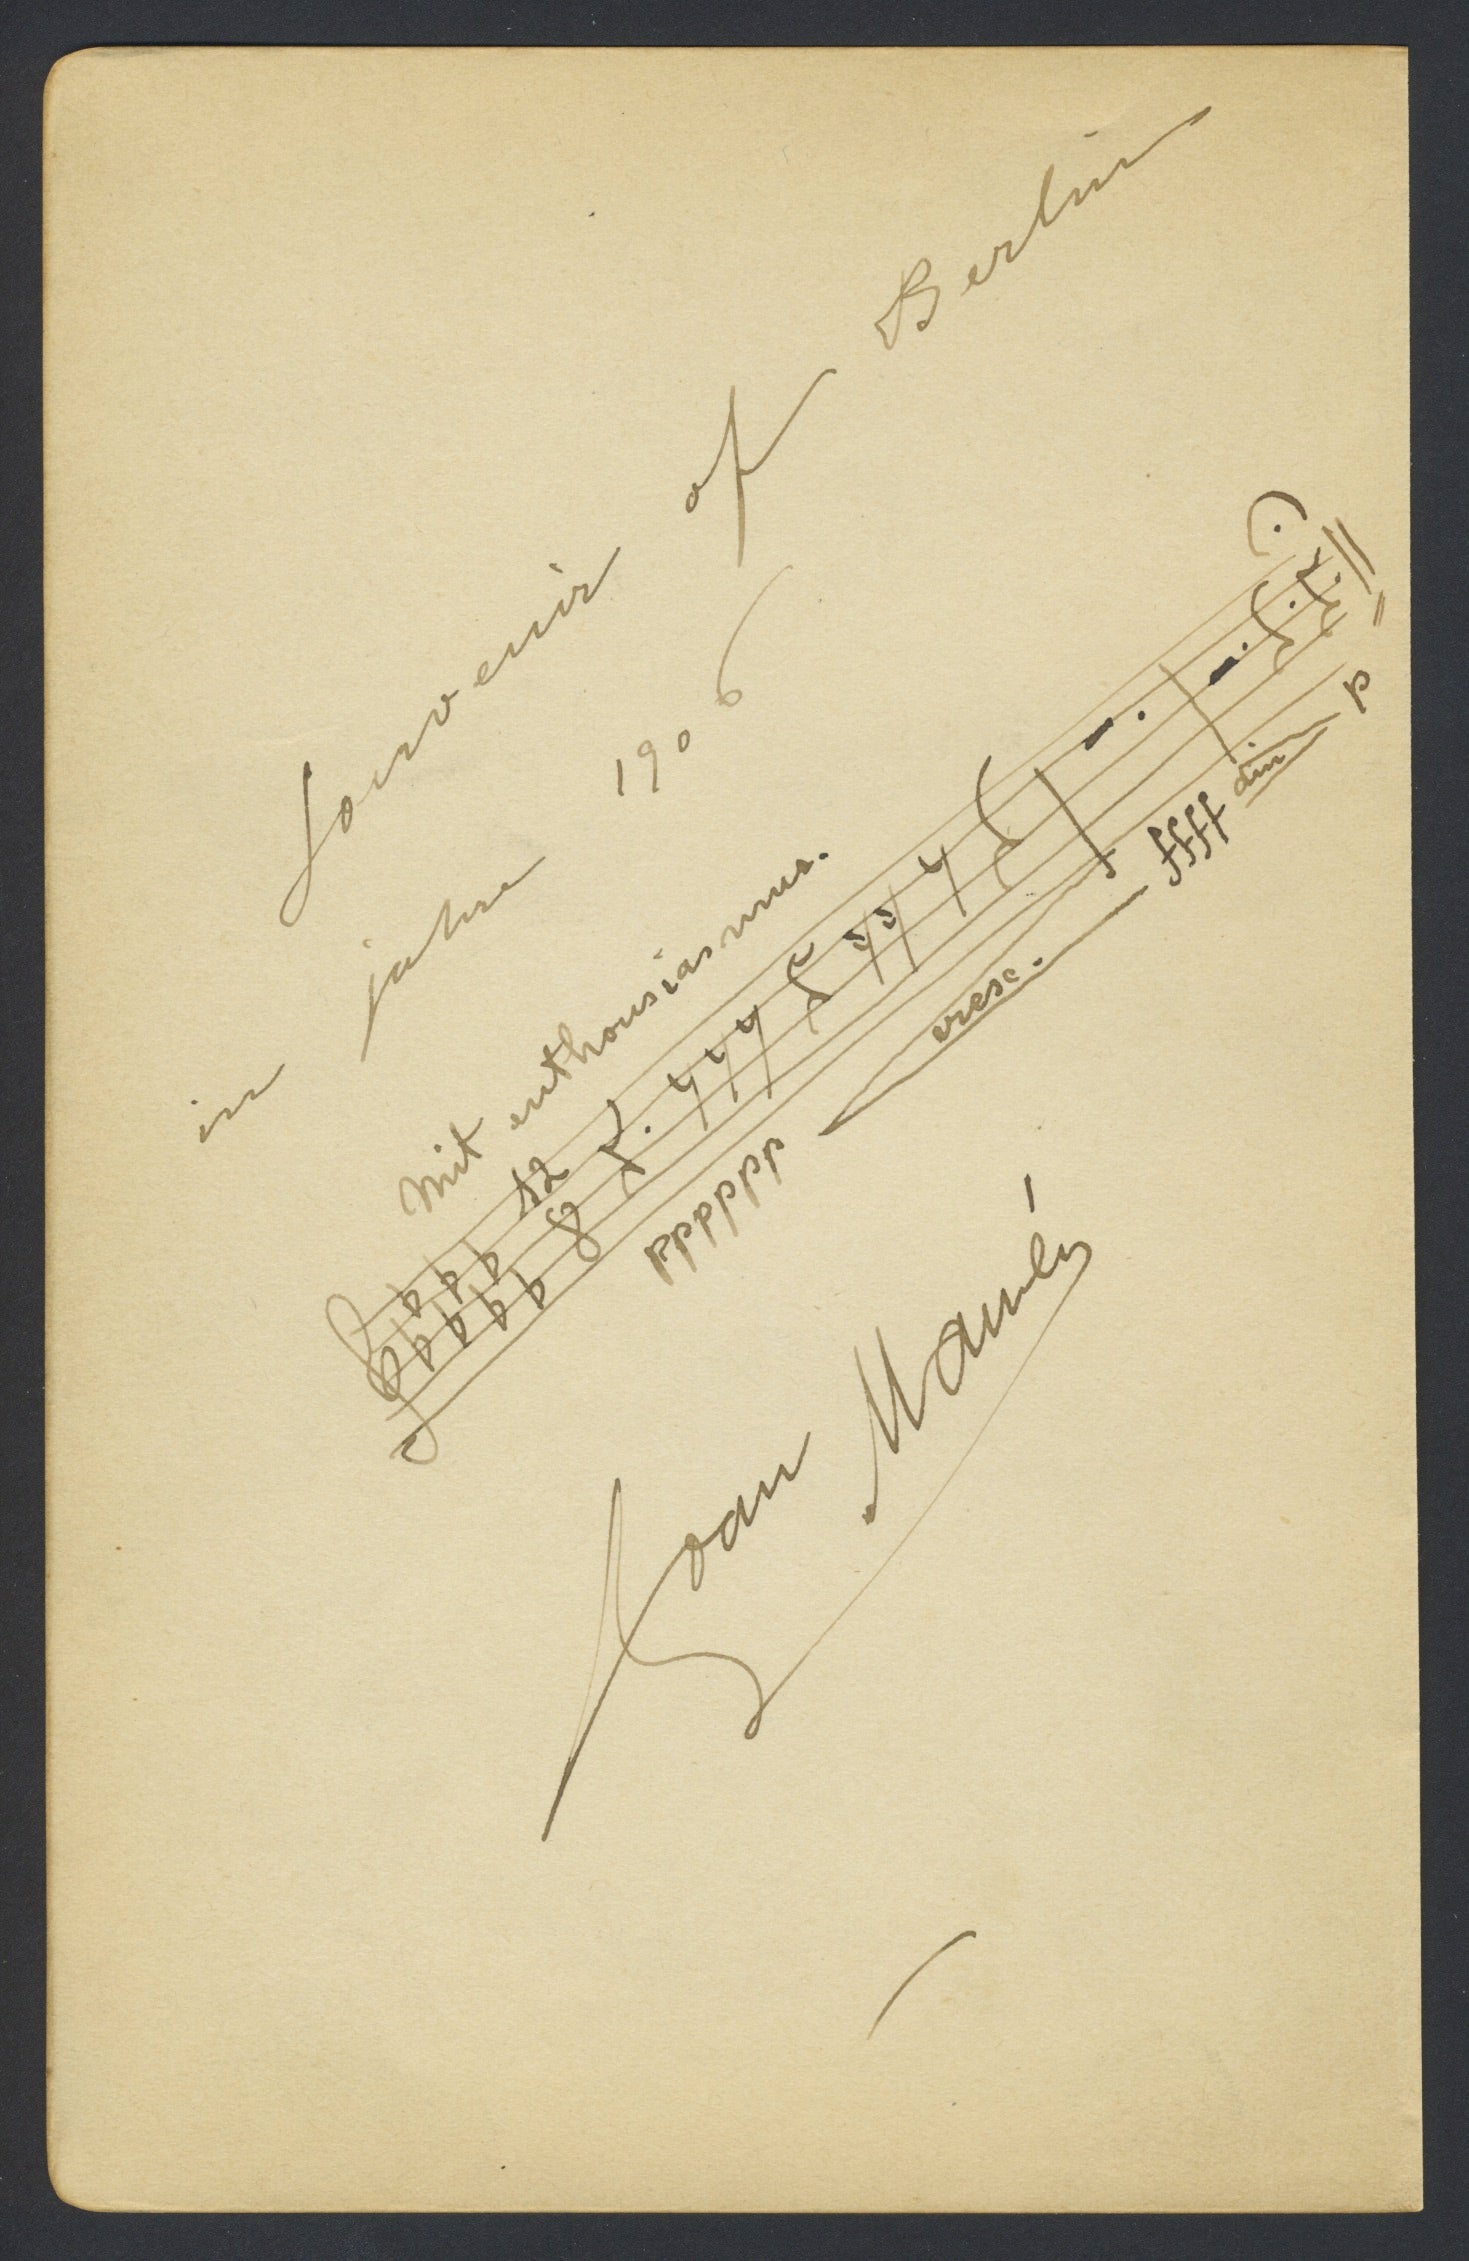 Souvenir of Berlin
in jahre 1906
Mit enthousiasmus.
12
8
pppppp cresc. ffff dim p
Joan Manén